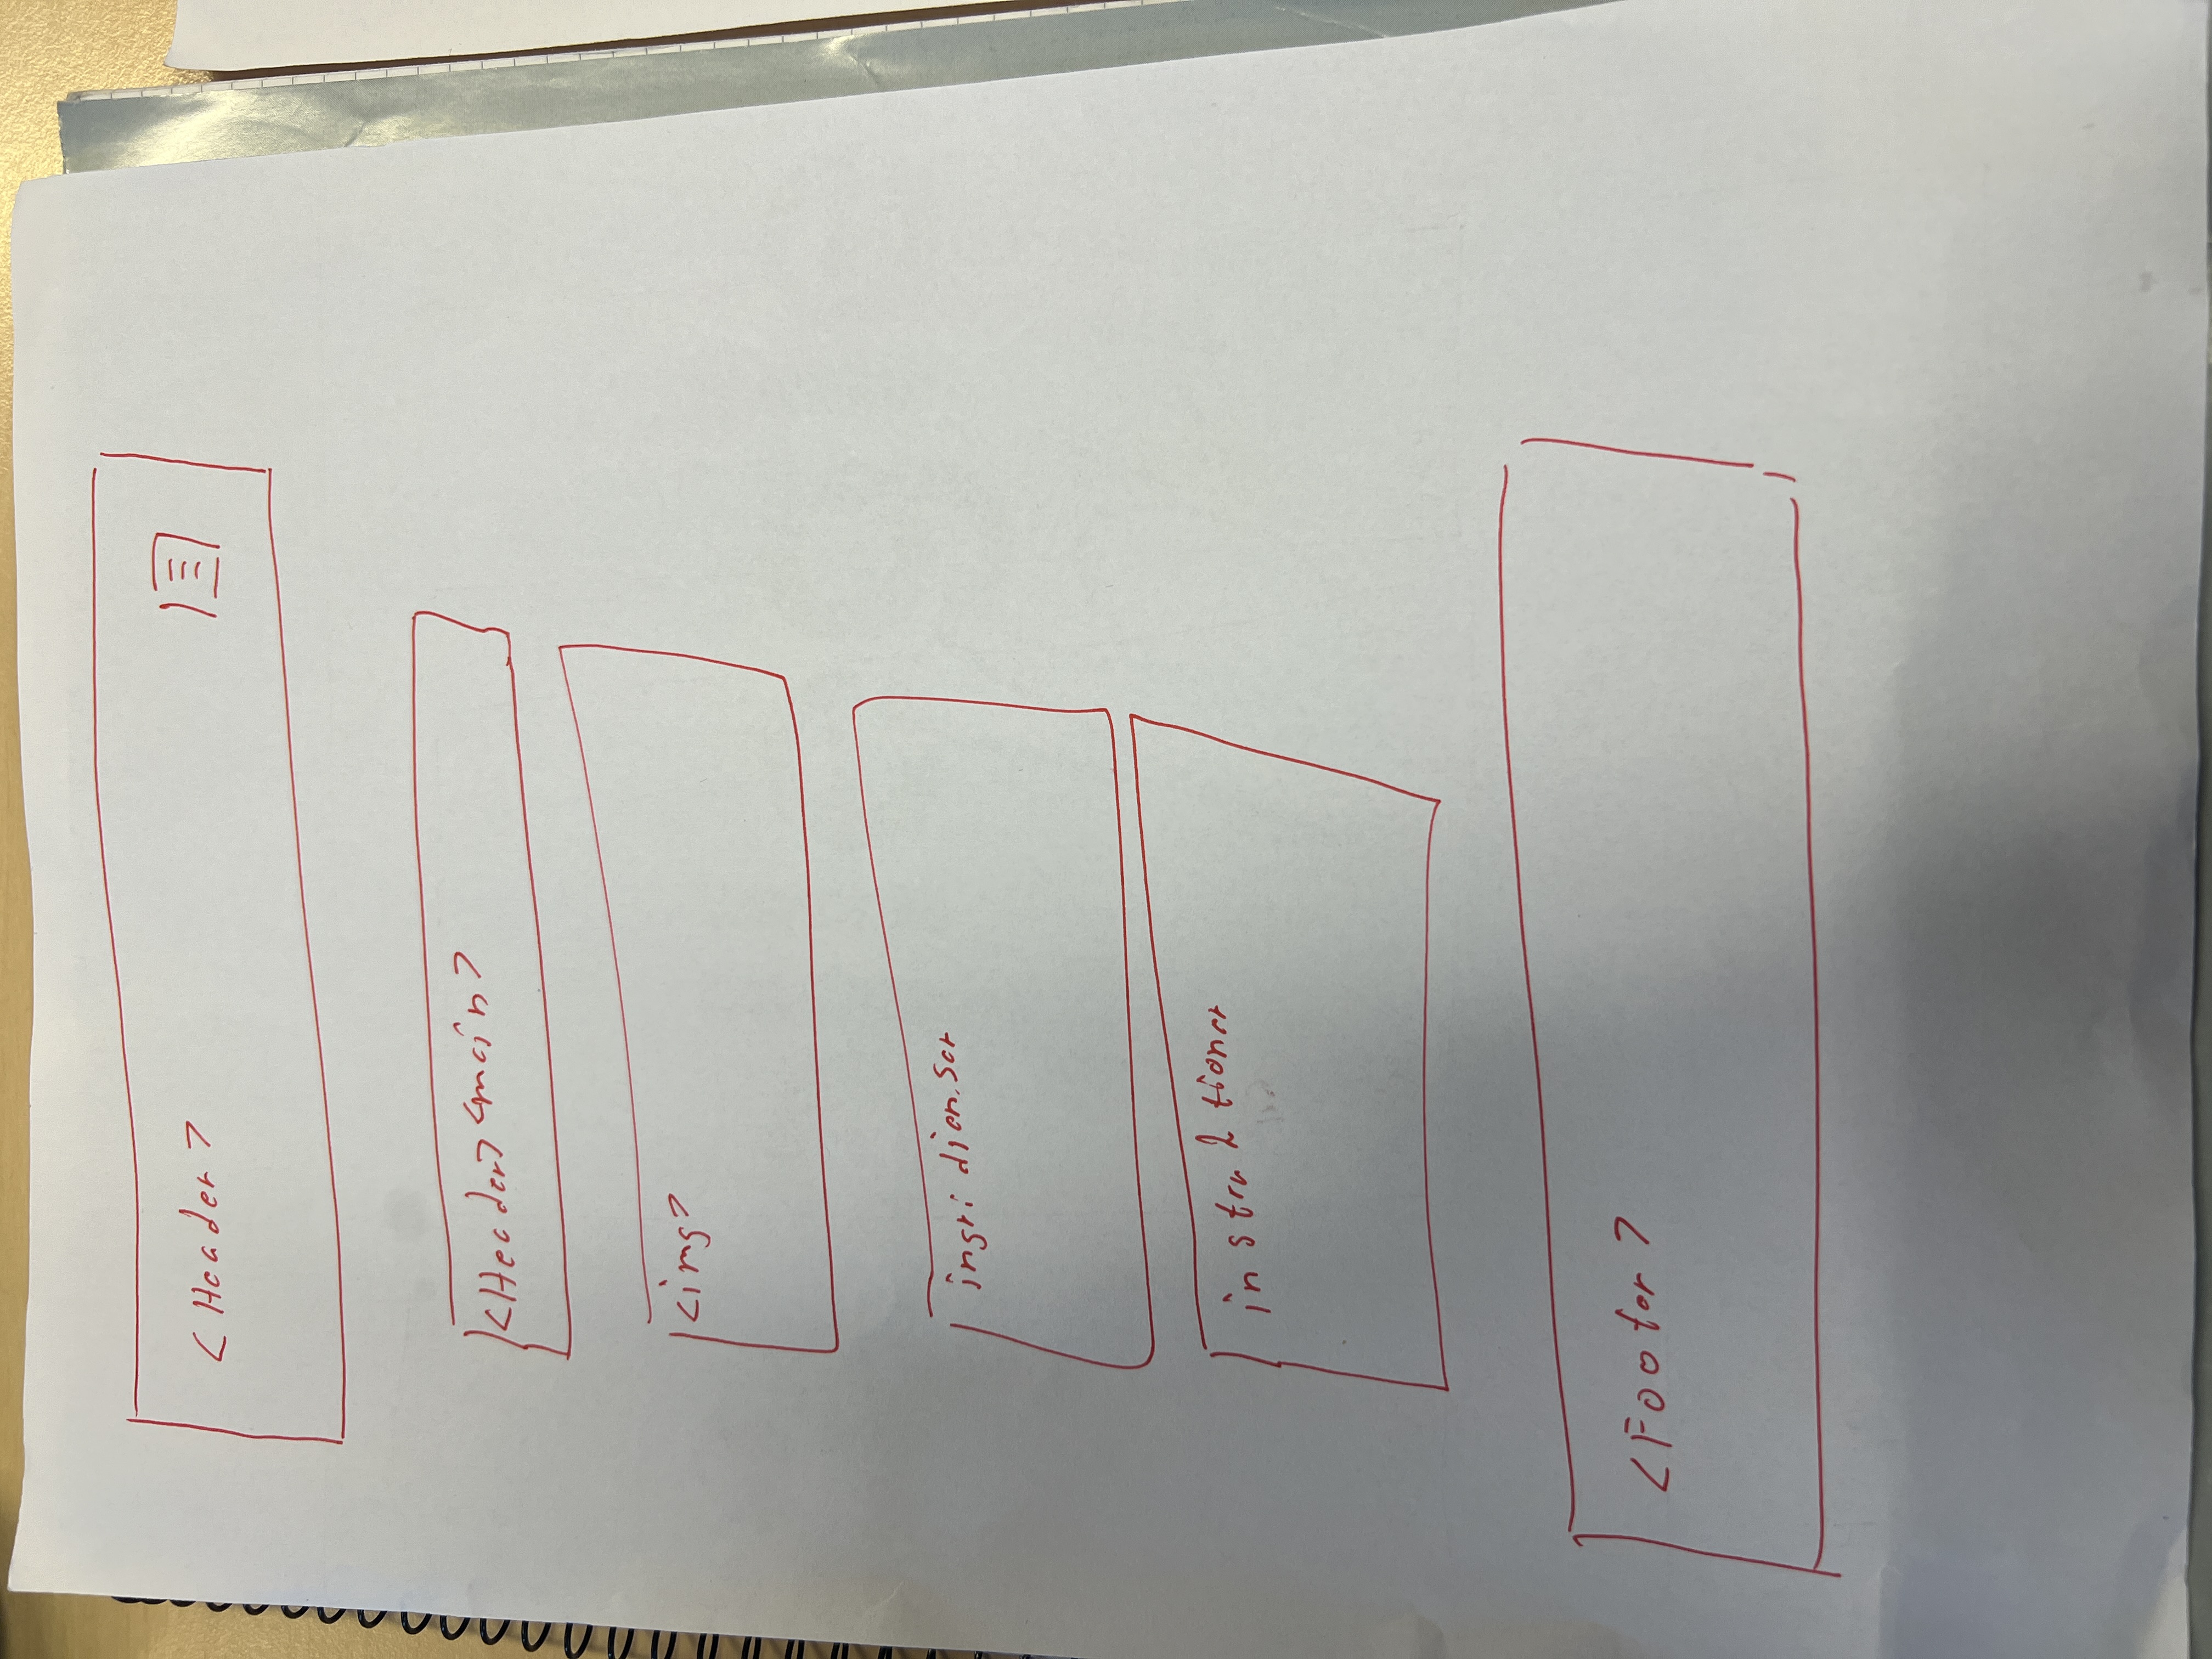 <Header>
<Header> <main>
<img>
ingridienser
instruktioner
<Footer>